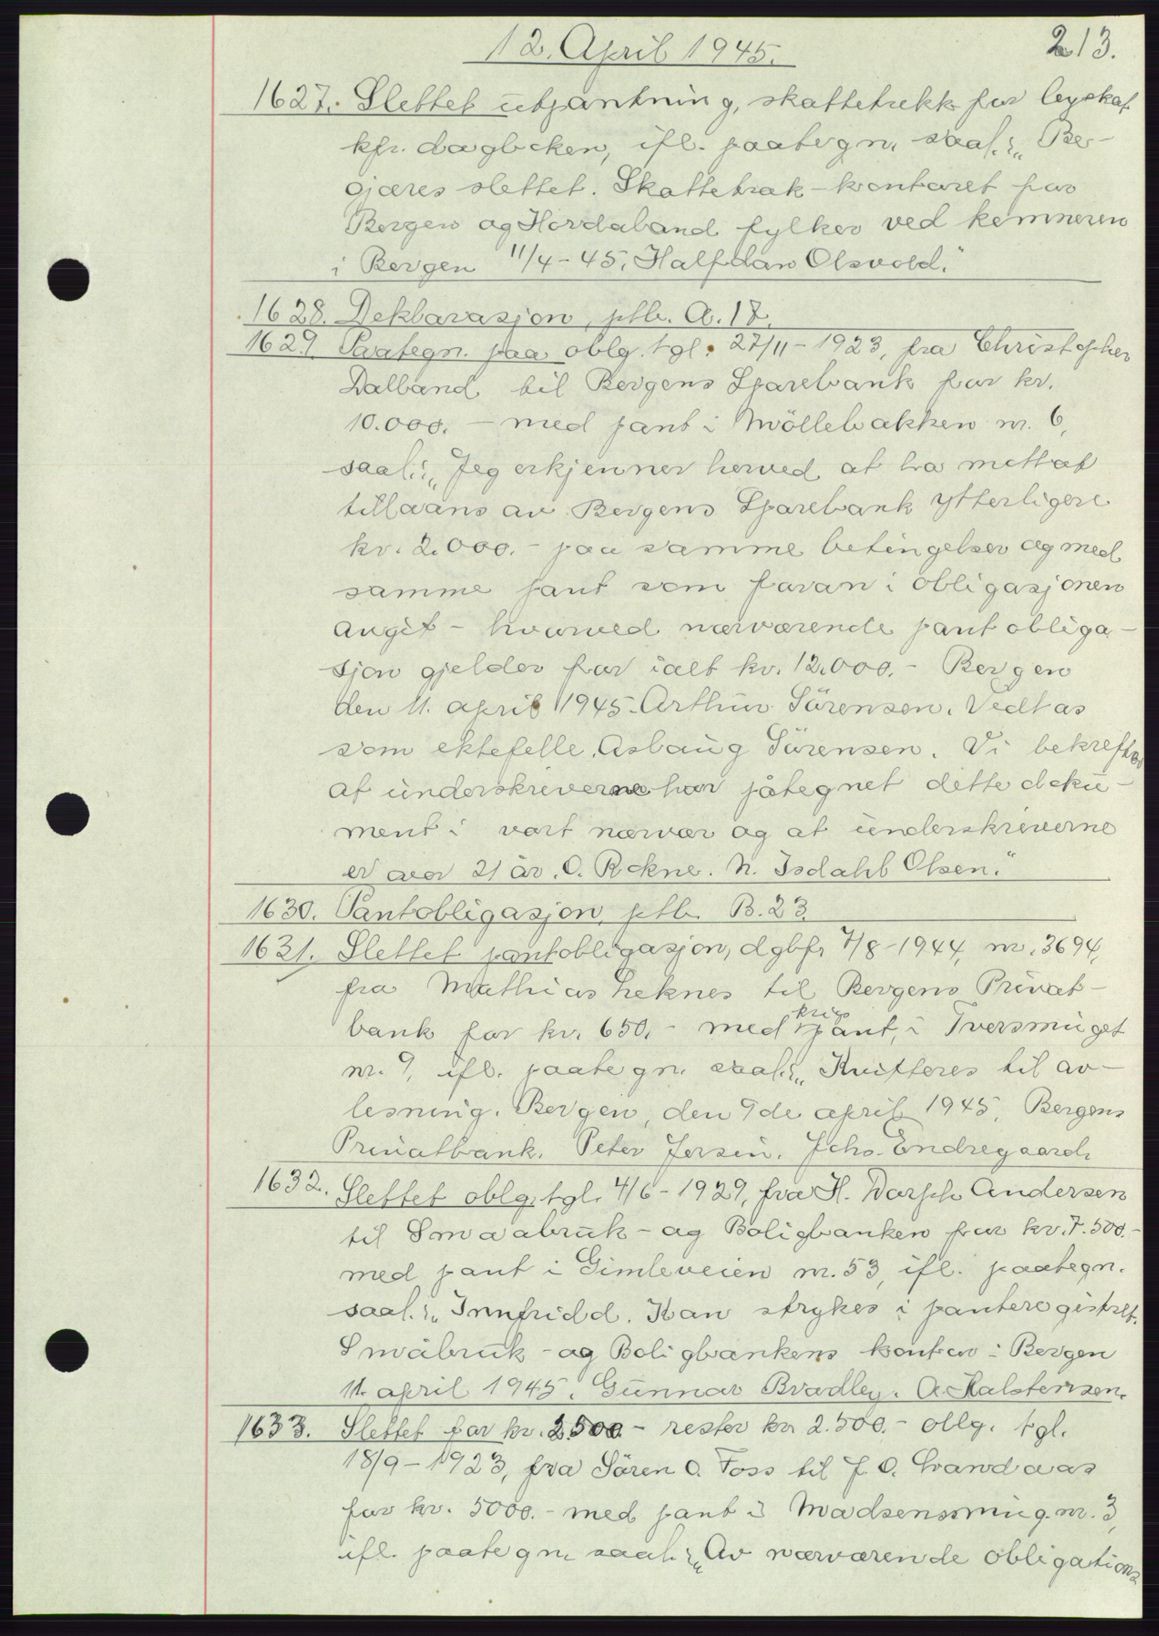 12. April 1945.
213.
1627. Slettet utpantning, skattetrekk for legskat
kfr. dagboken, ifl. paategn. saal.: „Be-
gjæres slettet. Skattetrek-kontoret for
Bergen og Hordaland fylker ved kemneren
i Bergen 11/4-45. Halfdan Olsvold."
1628. Deklarasjon, ptb. A. 17.
1629. Paategn. paa oblg. tgl. 27/11-1923, fra Christopher
Dalland til Bergens Sparebank for kr.
10.000.- med pant i Möllebakken nr. 6,
saal.: „Jeg erkjenner herved at ha mottat
tillaans av Bergens Sparebank ytterligere
kr. 2.000.- paa samme betingelser og med
samme pant som foran i obligasjonen
angit - hvorved nærværende pantobliga-
sjon gjelder for ialt kr. 12.000.- Bergen
den 11. april 1945. Arthur Sörensen. Vedtas
som ektefelle. Aslaug Sörensen. Vi bekrefter
at underskriverne har påtegnet dette doku-
ment i vort nærvær og at underskriverne
er over 21 år. O. Rokne. N. Isdahl Olsen."
1630. Pantobligasjon, ptb. B. 23.
1631. Slettet pantobligasjon, dgbfr. 7/8-1944, nr. 3694,
fra Mathias Leknes til Bergens Privat-
bank for kr. 650.- med krigspant, i Tversmuget
nr. 9, ifl. paategn. saal.: „Kvitteres til av-
lesning. Bergen, den 9de april 1945. Bergens
Privatbank. Peter Jersin. Johs. Endregaard.
1632. Slettet oblg. tgl. 4/6-1929, fra H. Dorph Andersen
til Smaabruk- og Boligbanken for kr. 7.500.-
med pant i Gimleveien nr. 53, ifl. paategn.
saal.: „Innfridd. Kan strykes i panteregistret.
Småbruk- og Boligbankens kontor i Bergen
11. april 1945. Gunnar Bradley. A. Kalstensen.
1633. Slettet for kr. 2500.- rester kr. 2.500.- oblg. tgl.
18/9-1923, fra Sören O. Foss til J. O. Grandaas
for kr. 5000.- med pant i Madsensmug nr. 3,
ifl. paategn. saal.: „Av nærværende obligations